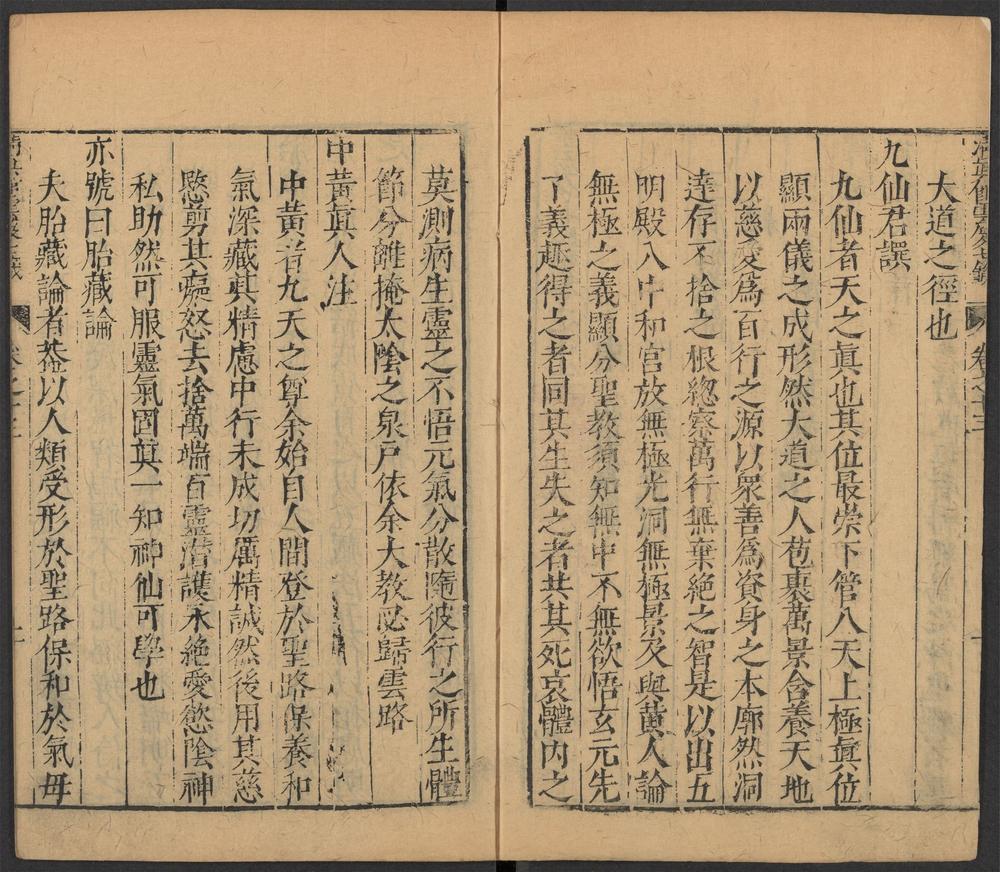 大道之徑也
九仙君譔
九仙者天之眞也其位最崇下管八天上極眞位
顯兩儀之成形然大道之人苞裹萬景含養天地
以慈愛爲百行之源以衆善爲資身之本廓然洞
達存不捨之根緫察萬行無棄絶之智是以出五
明殿入中和宮放無極光洞無極景及與黃人論
無極之義顯分聖教須知無中不無欲悟玄元先
了義趣得之者同其生失之者共其死哀體内之
卷之十三
莫測病生靈之不悟元氣分散隨彼行之所生體
節分離掩太陰之泉戸依余大教必歸雲路
中黃眞人注
中黃者九天之尊余始自人間登於聖路保養和
氣深藏其精慮中行未成切厲精誠然後用其慈
愍剪其癡怒去捨萬端百靈潛護永絶愛慾陰神
私助然可服靈氣固眞一知神仙可學也
亦號曰胎藏論
夫胎藏論者葢以人類受形於聖路保和於氣母